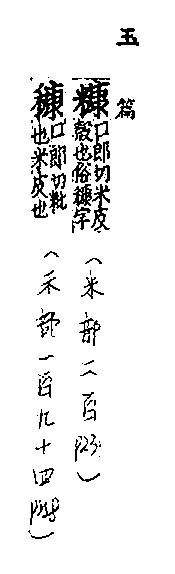 玉篇
糠 口郎切米皮
殼也俗穅字
（米部二百
穅 口郎切粃
也米皮也
（禾部一百九十四